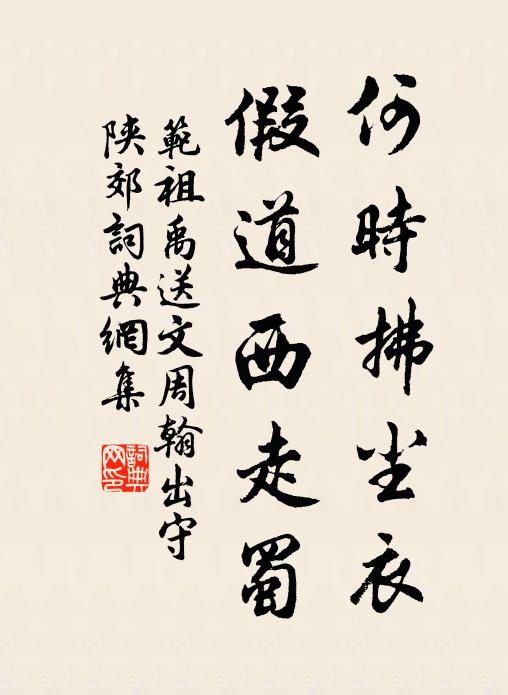 何時拂尘衣
假道西走蜀
範祖禹送文周翰出守
陝郊詞典網集
詞典
网印